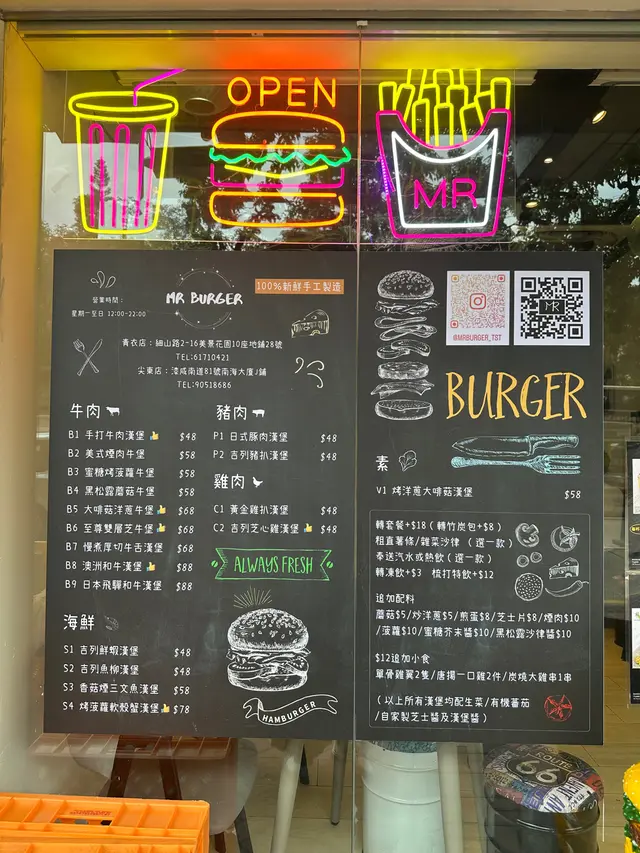 OPEN
MR
營業時間：
星期一至日 12:00-22:00
MR BURGER
100%新鮮手工製造
青衣店：細山路2-16美景花園10座地鋪28號
TEL:61710421
尖東店：漆咸南道81號南海大廈J鋪
TEL:90518686
牛肉
B1 手打牛肉漢堡 $48
B2 美式煙肉牛堡 $58
B3 蜜糖烤菠蘿牛堡 $58
B4 黑松露蘑菇牛堡 $58
B5 大啡菇洋蔥牛堡 $68
B6 至尊雙層芝牛堡 $68
B7 慢煮厚切牛舌漢堡 $68
B8 澳洲和牛漢堡 $88
B9 日本飛驒和牛漢堡 $88
海鮮
S1 吉列鮮蝦漢堡 $48
S2 吉列魚柳漢堡 $48
S3 香菇煙三文魚漢堡 $58
S4 烤菠蘿軟殼蟹漢堡 $78
豬肉
P1 日式豚肉漢堡 $48
P2 吉列豬扒漢堡 $48
雞肉
C1 黃金雞扒漢堡 $48
C2 吉列芝心雞漢堡 $48
ALWAYS FRESH
HAMBURGER
@MRBURGER_TST
MR
BURGER
素
V1 烤洋蔥大啡菇漢堡 $58
轉套餐+$18（轉竹炭包+$8）
粗直薯條/雜菜沙律（選一款）
奉送汽水或熱飲（選一款）
轉凍飲+$3 梳打特飲+$12
追加配料
蘑菇$5/炒洋蔥$5/煎蛋$8/芝士片$8/煙肉$10
/菠蘿$10/蜜糖芥末醬$10/黑松露沙律醬$10
$12追加小食
單骨雞翼2隻/唐揚一口雞2件/炭燒大雞串1串
（以上所有漢堡均配生菜/有機蕃茄
/自家製芝士醬及漢堡醬）
ROUTE
66